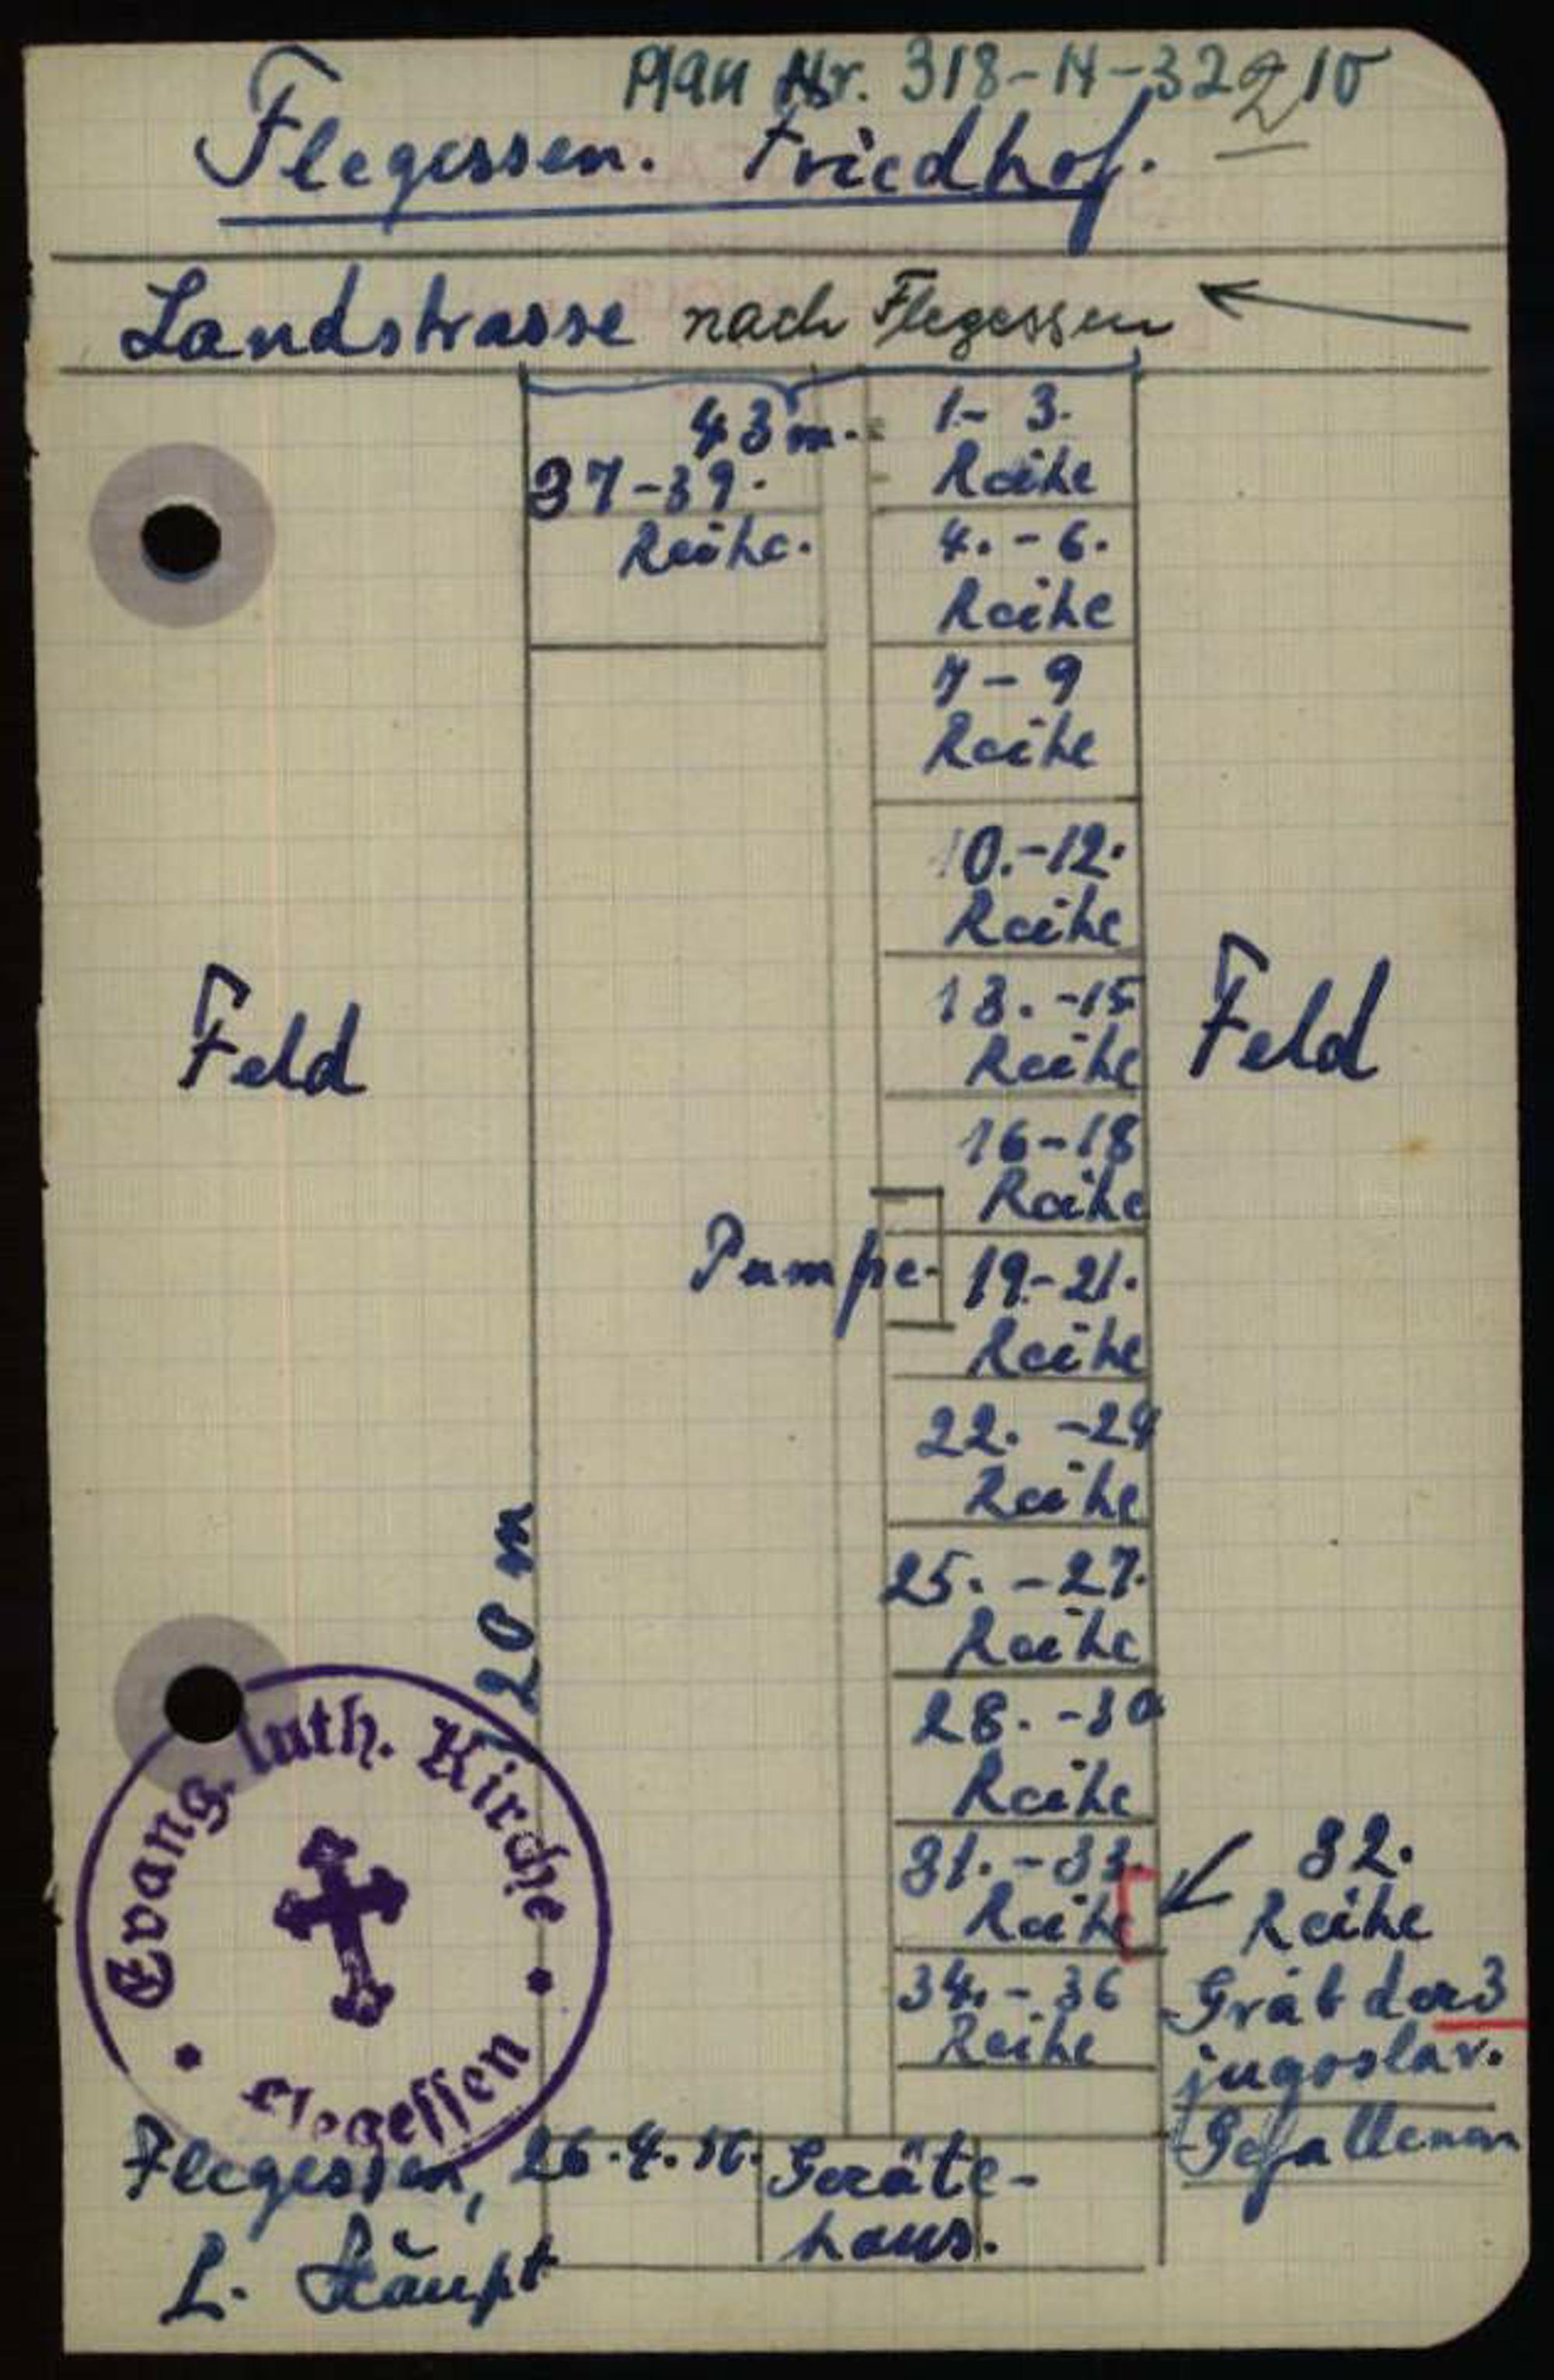 Plan Nr. 318-N-32210
2
Flegessen. Friedhof.
Landstrasse nach Flegessen
43 m.
37-39.
Reihe.
1- 3.
Reihe
4. - 6.
Reihe
7 - 9
Reihe
10.-12.
Reihe
13. -15
Reihe
16-18
Reihe
Pumpe.
19.-21.
Reihe
22. -24
Reihe
25. -27.
Reihe
28. -30
Reihe
31. -33.
Reihe
34. - 36
Reihe
Feld
Feld
120 m
32.
Reihe
Grab der 3
jugoslav.
Gefallenen
Evang. luth. Kirche
Flegessen
Flegessen, 26.4.56.
Geräte-
haus.